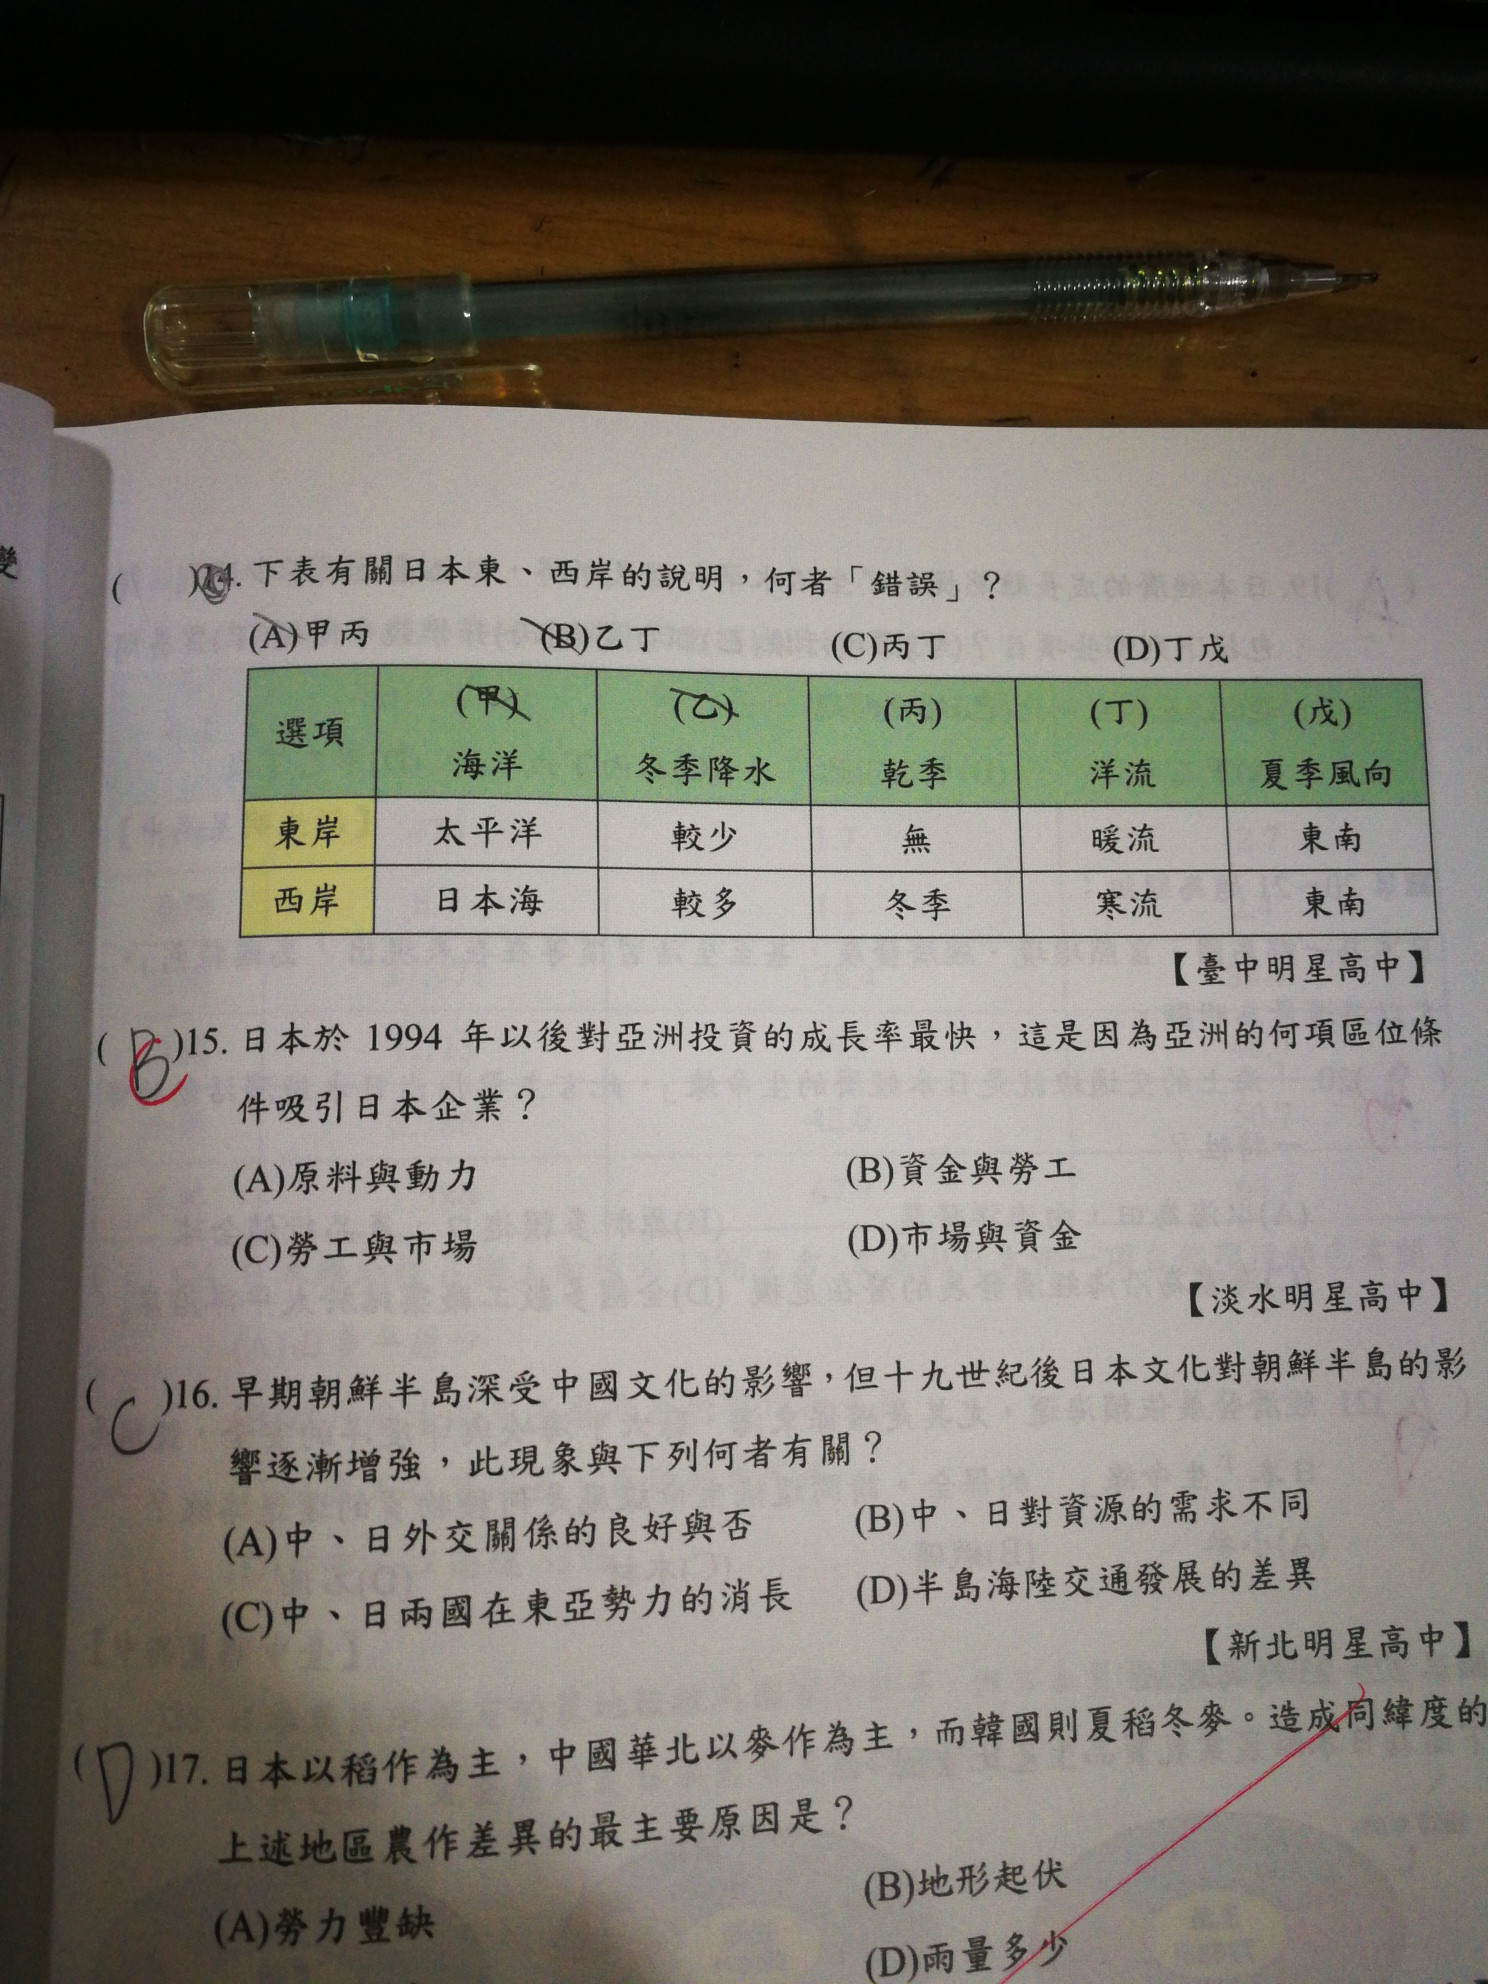 變
( )14. 下表有關日本東、西岸的說明，何者「錯誤」？
(A)甲丙 (B)乙丁 (C)丙丁 (D)丁戊
選項 (甲)海洋 (乙)冬季降水 (丙)乾季 (丁)洋流 (戊)夏季風向
東岸 太平洋 較少 無 暖流 東南
西岸 日本海 較多 冬季 寒流 東南
【臺中明星高中】
( B )15. 日本於 1994 年以後對亞洲投資的成長率最快，這是因為亞洲的何項區位條
件吸引日本企業？
(A)原料與動力 (B)資金與勞工
(C)勞工與市場 (D)市場與資金
【淡水明星高中】
( C )16. 早期朝鮮半島深受中國文化的影響，但十九世紀後日本文化對朝鮮半島的影
響逐漸增強，此現象與下列何者有關？
(A)中、日外交關係的良好與否 (B)中、日對資源的需求不同
(C)中、日兩國在東亞勢力的消長 (D)半島海陸交通發展的差異
【新北明星高中】
( D )17. 日本以稻作為主，中國華北以麥作為主，而韓國則夏稻冬麥。造成同緯度的
上述地區農作差異的最主要原因是？
(A)勞力豐缺 (B)地形起伏
(D)雨量多少